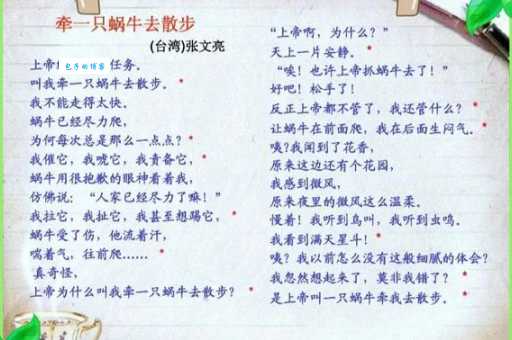 牵一只蜗牛去散步
(台湾)张文亮
上帝 任务。
包子的博客
叫我牵一只蜗牛去散步。*
我不能走得太快。
蜗牛已经尽力爬，
为何每次总是那么一点点？*
我催它，我唬它，我责备它，*
蜗牛用很抱歉的眼神看着我，
仿佛说：“人家已经尽力了嘛！”
我拉它，我扯它，我甚至想踢它，*
蜗牛受了伤，他流着汗，
喘着气，往前爬……*
真奇怪，
上帝为什么叫我牵一只蜗牛去散步？*
“上帝啊，为什么？”
天上一片安静。
“唉！也许上帝抓蜗牛去了！”
好吧！松手了！
反正上帝都不管了，我还管什么？*
让蜗牛在前面爬，我在后面生闷气。*
咦?我闻到了花香，
原来这边还有个花园，
我感到微风，
原来夜里的微风这么温柔。
慢着！我听到鸟叫，我听到虫鸣。
我看到满天星斗！*
咦？我以前怎么没有这般细腻的体会？
我忽然想起来了，莫非我错了？*
是上帝叫一只蜗牛牵我去散步。*